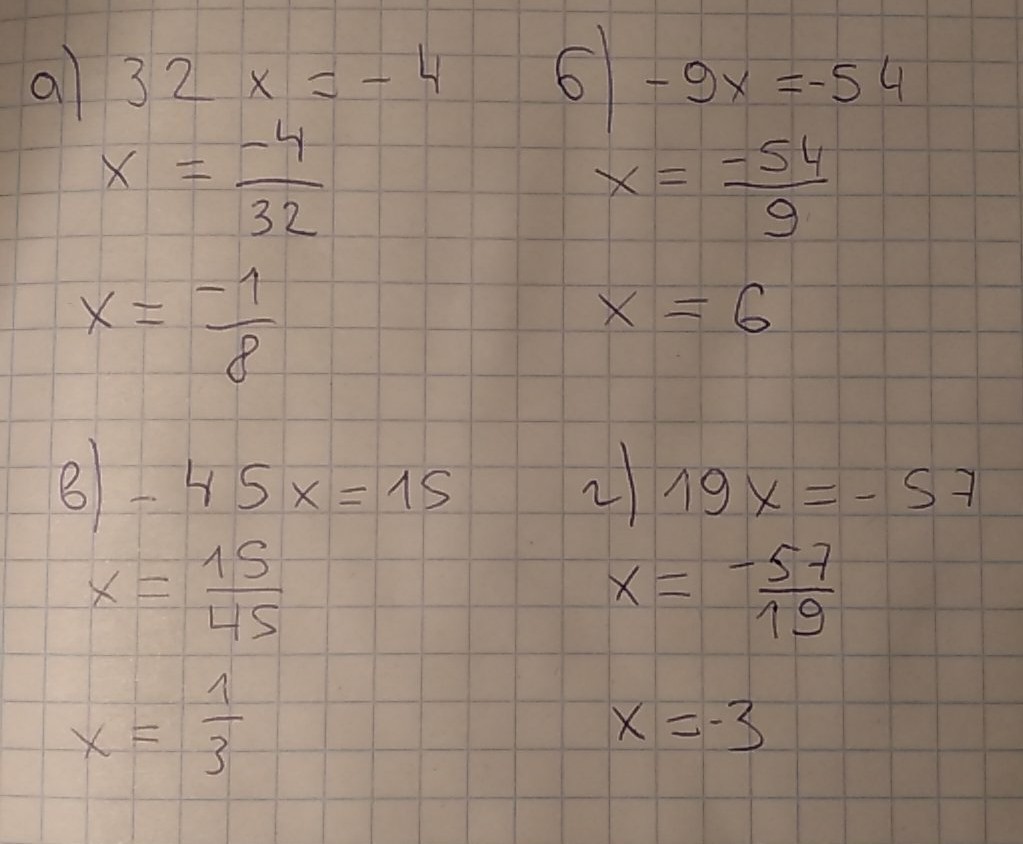 а) 32 x = - 4
x = -4/32
x = -1/8
б) -9x = -54
x = -54/9
x = 6
в) - 45x = 15
x = 15/45
x = 1/3
г) 19x = - 57
x = -57/19
x = -3